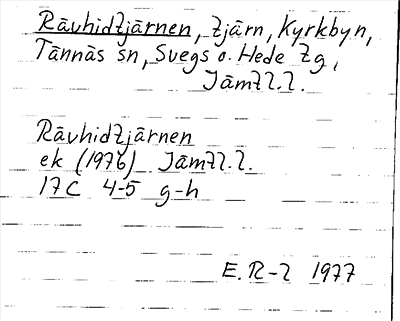 Rāvhidtjārnen, tjārn, Kyrkbyn,
Tānnās sn, Svegs o. Hede tg,
Jāmtl.l.
Rāvhidtjārnen
ek (1976) Jāmtl.l.
17C 4-5 g-h
E.R-l 1977